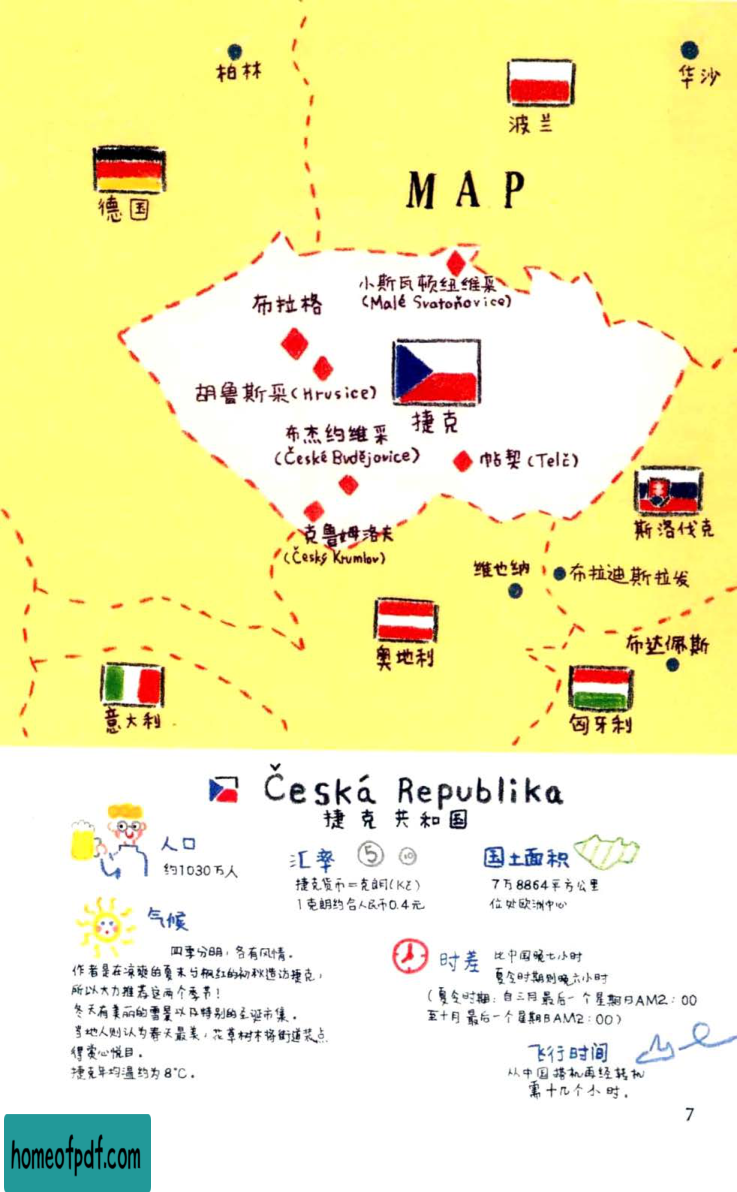 柏林
华沙
波兰
德国
MAP
小斯瓦顿纽维采
(Malé Svatoňovice)
布拉格
胡鲁斯采(Hrusice)
捷克
布杰约维采
(České Budějovice)
帖契(Telč)
克鲁姆洛夫
(Český Krumlov)
斯洛伐克
维也纳
布拉迪斯拉发
奥地利
布达佩斯
意大利
匈牙利
Česká Republika
捷克共和国
人口
约1030万人
汇率
5
10
捷克货币=克朗(Kč)
1克朗约合人民币0.4元
国土面积
7万8864平方公里
位处欧洲中心
气候
四季分明,各有风情。
作者是在凉爽的夏末与枫红的初秋造访捷克,
所以大力推荐这两个季节!
冬天有美丽的雪景以及特别的圣诞市集。
当地人则认为春天最美,花草树木将街道装点
得赏心悦目。
捷克年均温约为8℃。
时差
比中国晚七小时
夏令时期则晚六小时
(夏令时期:自三月最后一个星期日AM2:00
至十月最后一个星期日AM2:00)
飞行时间
从中国搭机再经转机
需十几个小时。
7
homeofpdf.com